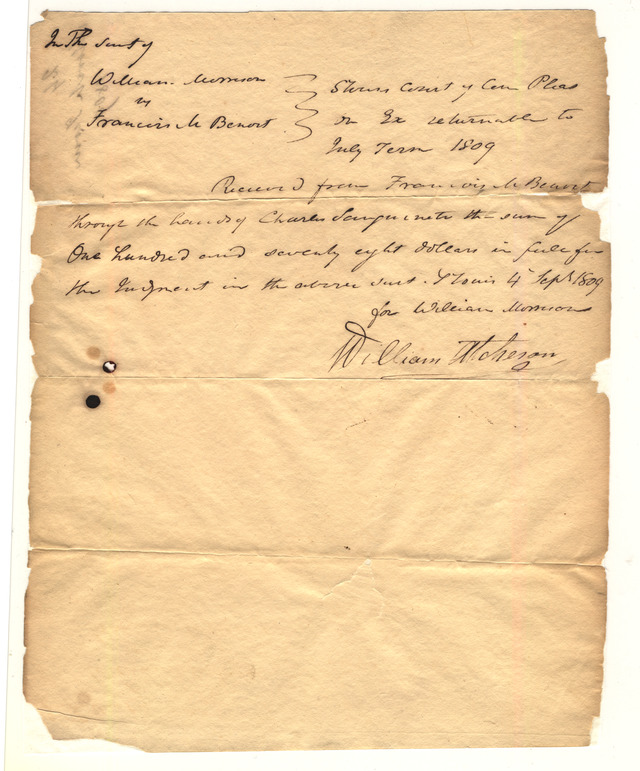 In The suit of
William Morrison } St Louis Court of Com Pleas
vs
Francis M Benoit } on Ex returnable to
July Term 1809
Received from Francis M Benoit
through the hands of Charles Sanguinete the sum of
One hundred and seventy eight dollars in full for
the Judgment in the above suit. St Louis 4 Sept 1809
for William Morrison
William